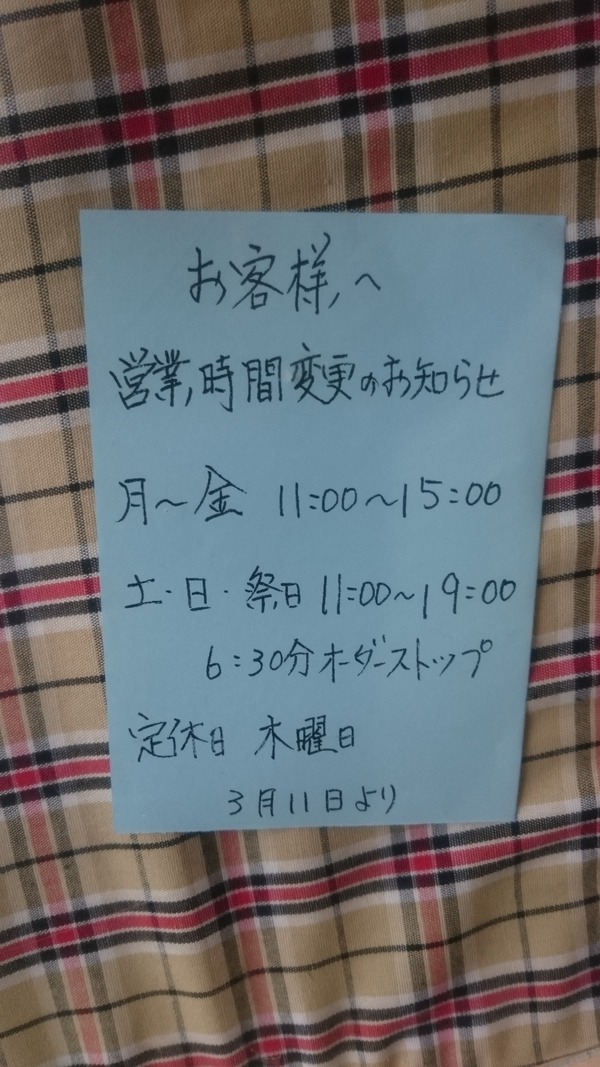 お客様へ
営業時間変更のお知らせ
月〜金 11:00〜15:00
土・日・祭日 11:00〜19:00
6:30分オーダーストップ
定休日 木曜日
3月11日より